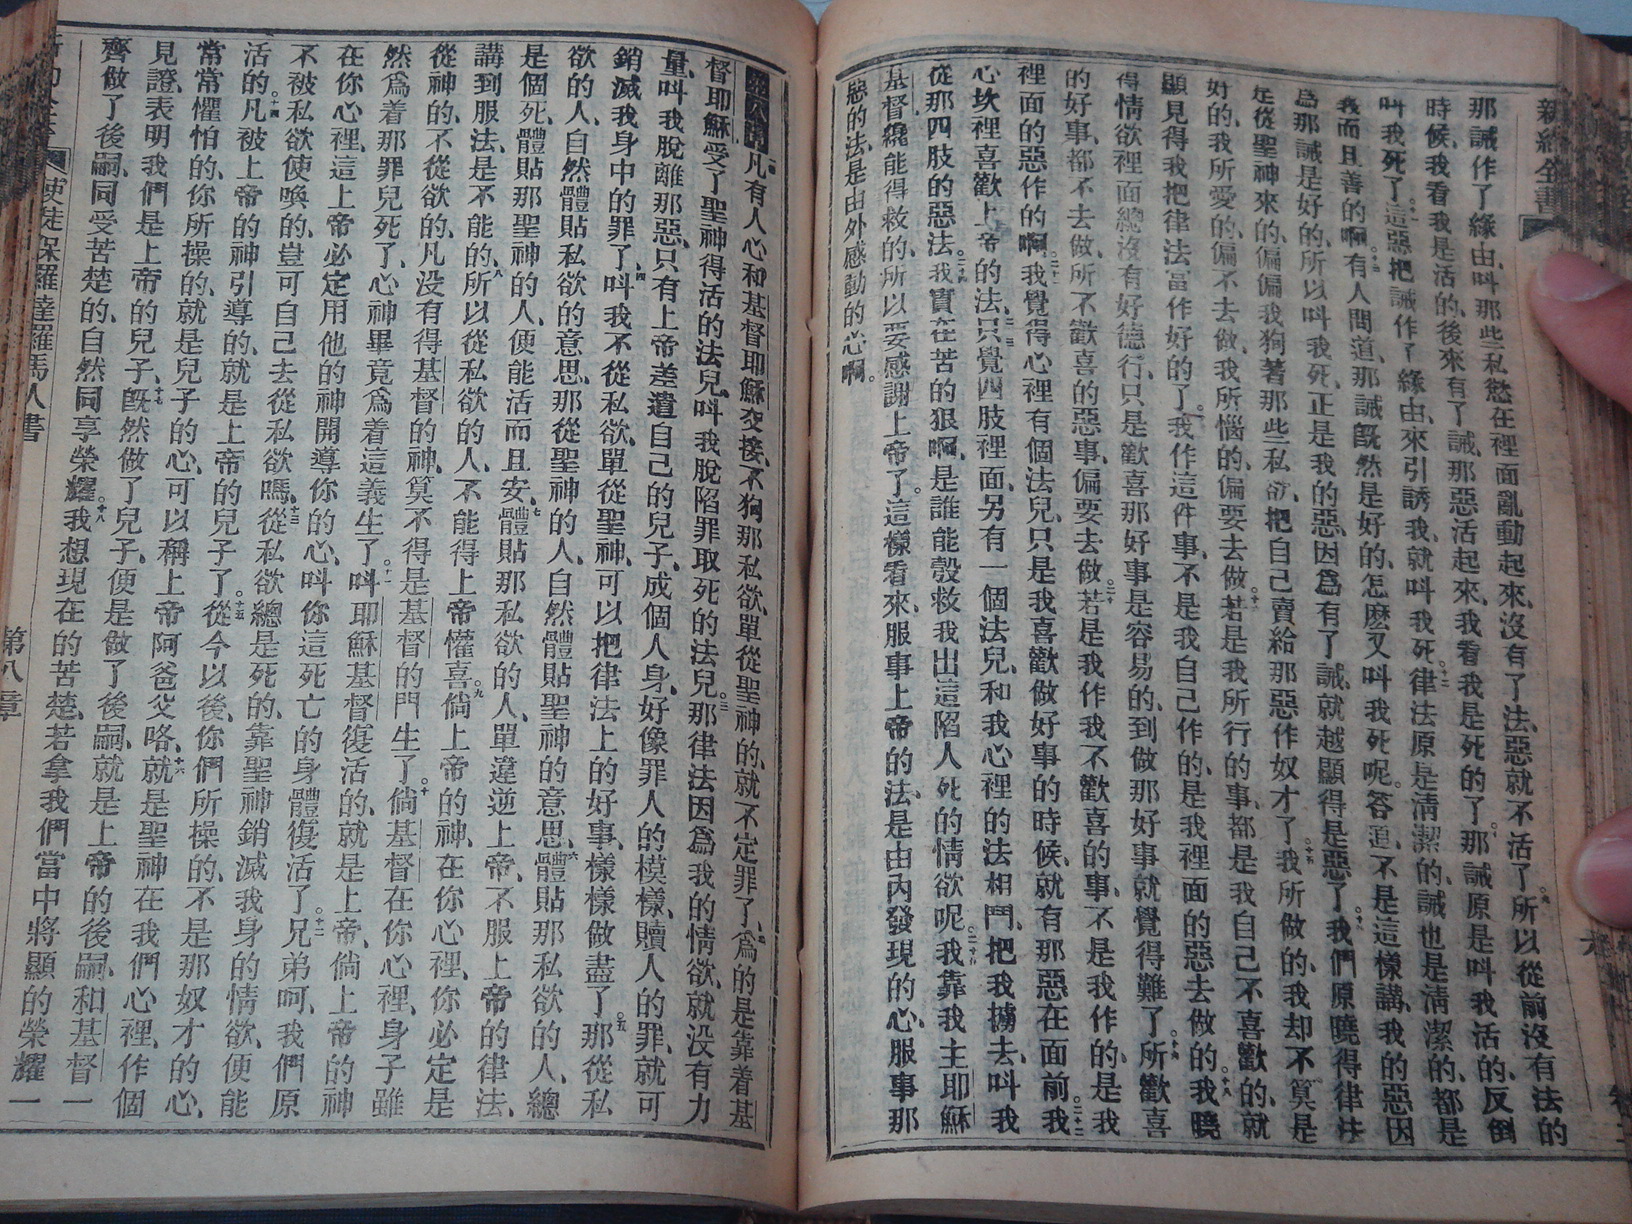 新約全書
那誡作了緣由、叫那些私慾在裡面亂動起來、沒有了法、惡就不活了。九所以從前沒有法的
時候、我看我是活的、後來有了誡、那惡活起來、我看我是死的了。十那誡原是叫我活的、反倒
叫我死了。十一這惡把誡作了緣由、來引誘我、就叫我死。十二律法原是清潔的、誡也是清潔的、都是
義而且善的啊。十三有人問道、那誡既然是好的、怎麽又叫我死呢。答道、不是這樣講、我的惡因
爲那誡是好的、所以叫我死、正是我的惡、因爲有了誡、就越顯得是惡了。十四我們原曉得律法
是從聖神來的、偏偏我狥著那些私欲、把自己賣給那惡作奴才了。十五我所做的、我却不算是
好的、我所愛的、偏不去做、我所惱的、偏要去做。十六若是我所行的事、都是我自己不喜歡的、就
顯見得我把律法當作好的了。十七我作這件事、不是我自己作的、是我裡面的惡去做的。十八我曉
得情欲裡面總沒有好德行、只是歡喜那好事是容易的、到做那好事就覺得難了。十九所歡喜
的好事、都不去做、所不歡喜的惡事、偏要去做。二十若是我作我不歡喜的事、不是我作的、是我
裡面的惡作的啊。二十一我覺得心裡有個法兒、只是我喜歡做好事的時候、就有那惡在面前。二十二我
心坎裡喜歡上帝的法、二十三只覺四肢裡面、另有一個法兒、和我心裡的法相鬥、把我擄去、叫我
從那四肢的惡法。二十四我實在苦的狠啊、是誰能彀救我出這陷人死的情欲呢。二十五我靠我主耶穌
基督纔能得救的、所以要感謝上帝了。這樣看來、服事上帝的法、是由內發現的心、服事那
惡的法、是由外感動的心啊。
凡有人心和基督耶穌交接、不狥那私欲、單從聖神的、就不定罪了、二爲的是靠着基
督耶穌受了聖神得活的法兒、叫我脫陷罪取死的法兒。三那律法因爲我的情欲、就没有力
量、叫我脫離那惡、只有上帝差遣自己的兒子、成個人身、好像罪人的模樣、贖人的罪、就可
銷滅我身中的罪了、四叫我不從私欲、單從聖神、可以把律法上的好事、樣樣做盡了。五那從私
欲的人、自然體貼私欲的意思、那從聖神的人、自然體貼聖神的意思、六體貼那私欲的人、總
是個死、體貼那聖神的人、便能活而且安、七體貼那私欲的人、單違逆上帝、不服上帝的律法、
講到服法、是不能的、八所以從私欲的人、不能得上帝懽喜。九倘上帝的神、在你心裡、你必定是
從神的、不從欲的、凡没有得基督的神、算不得是基督的門生了。十倘基督在你心裡、身子雖
然爲着那罪兒死了、心神畢竟爲着這義生了。十一叫耶穌基督復活的、就是上帝、倘上帝的神
在你心裡、這上帝必定用他的神開導你的心、叫你這死亡的身體復活了。十二兄弟呵、我們原
不被私欲使喚的、豈可自己去從私欲嗎、十三從私欲總是死的、靠聖神銷滅我身的情欲、便能
活的。十四凡被上帝的神引導的、就是上帝的兒子了。十五從今以後、你們所操的、不是那奴才的心、
常常懼怕的、你所操的、就是兒子的心、可以稱上帝阿爸父咯、十六就是聖神在我們心裡、作個
見證、表明我們是上帝的兒子、十七既然做了兒子、便是做了後嗣、就是上帝的後嗣、和基督一
齊做了後嗣、同受苦楚的、自然同享榮耀。十八我想現在的苦楚、若拿我們當中將顯的榮耀一
使徒保羅達羅馬人書 第八章